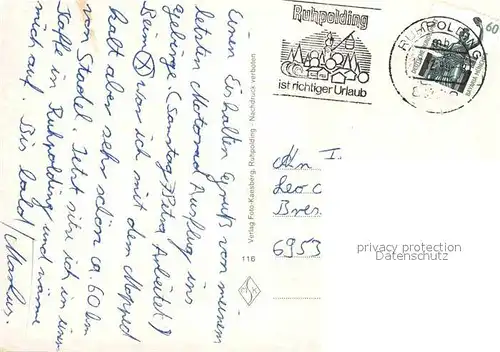 Einen Eiskalten Gruß von meinem
letzten Motorrad Ausflug ins
Gebirge. (Samstag, Petra Arbeitet.)
Beim war ich mit dem Moped
halt aber sehr schön ca. 60 km
von Stadel. Jetzt sitz ich in einem
Kaffe in Ruhpolding und wärme
mich auf. Bis bald
Markus.
Verlag Foto-Kaesberg, Ruhpolding - Nachdruck verboten
116
Ruhpolding
ist richtiger Urlaub
RUHPOLDING
60
An
Leo
Bres
6953
privacy protection
Datenschutz